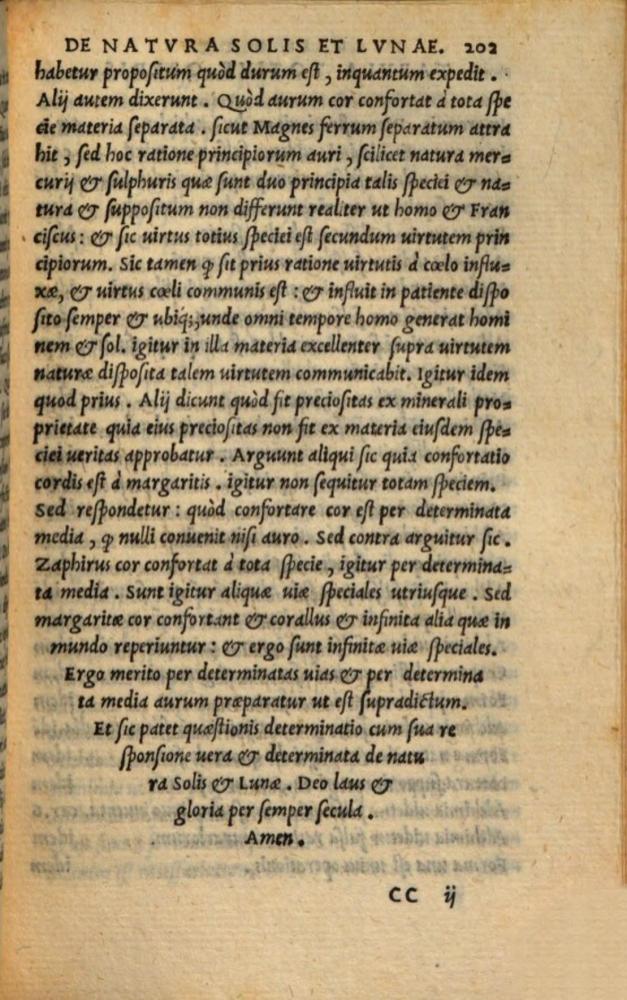 DE NATVRA SOLIS ET LVNAE. 202
habetur propositum quòd durum est, inquantum expedit.
Alij autem dixerunt. Quòd aurum cor confortat à tota spe
cie materia separata. sicut Magnes ferrum separatum attra
hit, sed hoc ratione principiorum auri, scilicet natura mer=
curij & sulphuris quæ sunt duo principia talis speciei & na=
tura & suppositum non differunt realiter ut homo & Fran
ciscus: & sic uirtus totius speciei est secundum uirtutem prin
cipiorum. Sic tamen ꝙ sit prius ratione uirtutis à cœlo influ=
xæ, & uirtus cœli communis est: & influit in patiente dispo
sito semper & ubiq;,unde omni tempore homo generat homi
nem & sol. igitur in illa materia excellenter supra uirtutem
naturæ disposita talem uirtutem communicabit. Igitur idem
quod prius. Alij dicunt quòd fit preciositas ex minerali pro=
prietate quia eius preciositas non fit ex materia eiusdem spe=
ciei ueritas approbatur. Arguunt aliqui sic quia confortatio
cordis est à margaritis. igitur non sequitur totam speciem.
Sed respondetur: quòd confortare cor est per determinata
media, ꝙ nulli conuenit nisi auro. Sed contra arguitur sic.
Zaphirus cor confortat à tota specie, igitur per determina=
ta media. Sunt igitur aliquæ uiæ speciales utriusque. Sed
margaritæ cor confortant & corallus & infinita alia quæ in
mundo reperiuntur: & ergo sunt infinitæ uiæ speciales.
Ergo merito per determinatas uias & per determina
ta media aurum præparatur ut est supradictum.
Et sic patet quæstionis determinatio cum sua re
sponsione uera & determinata de natu
ra Solis & Lunæ. Deo laus &
gloria per semper secula.
Amen.
CC ij